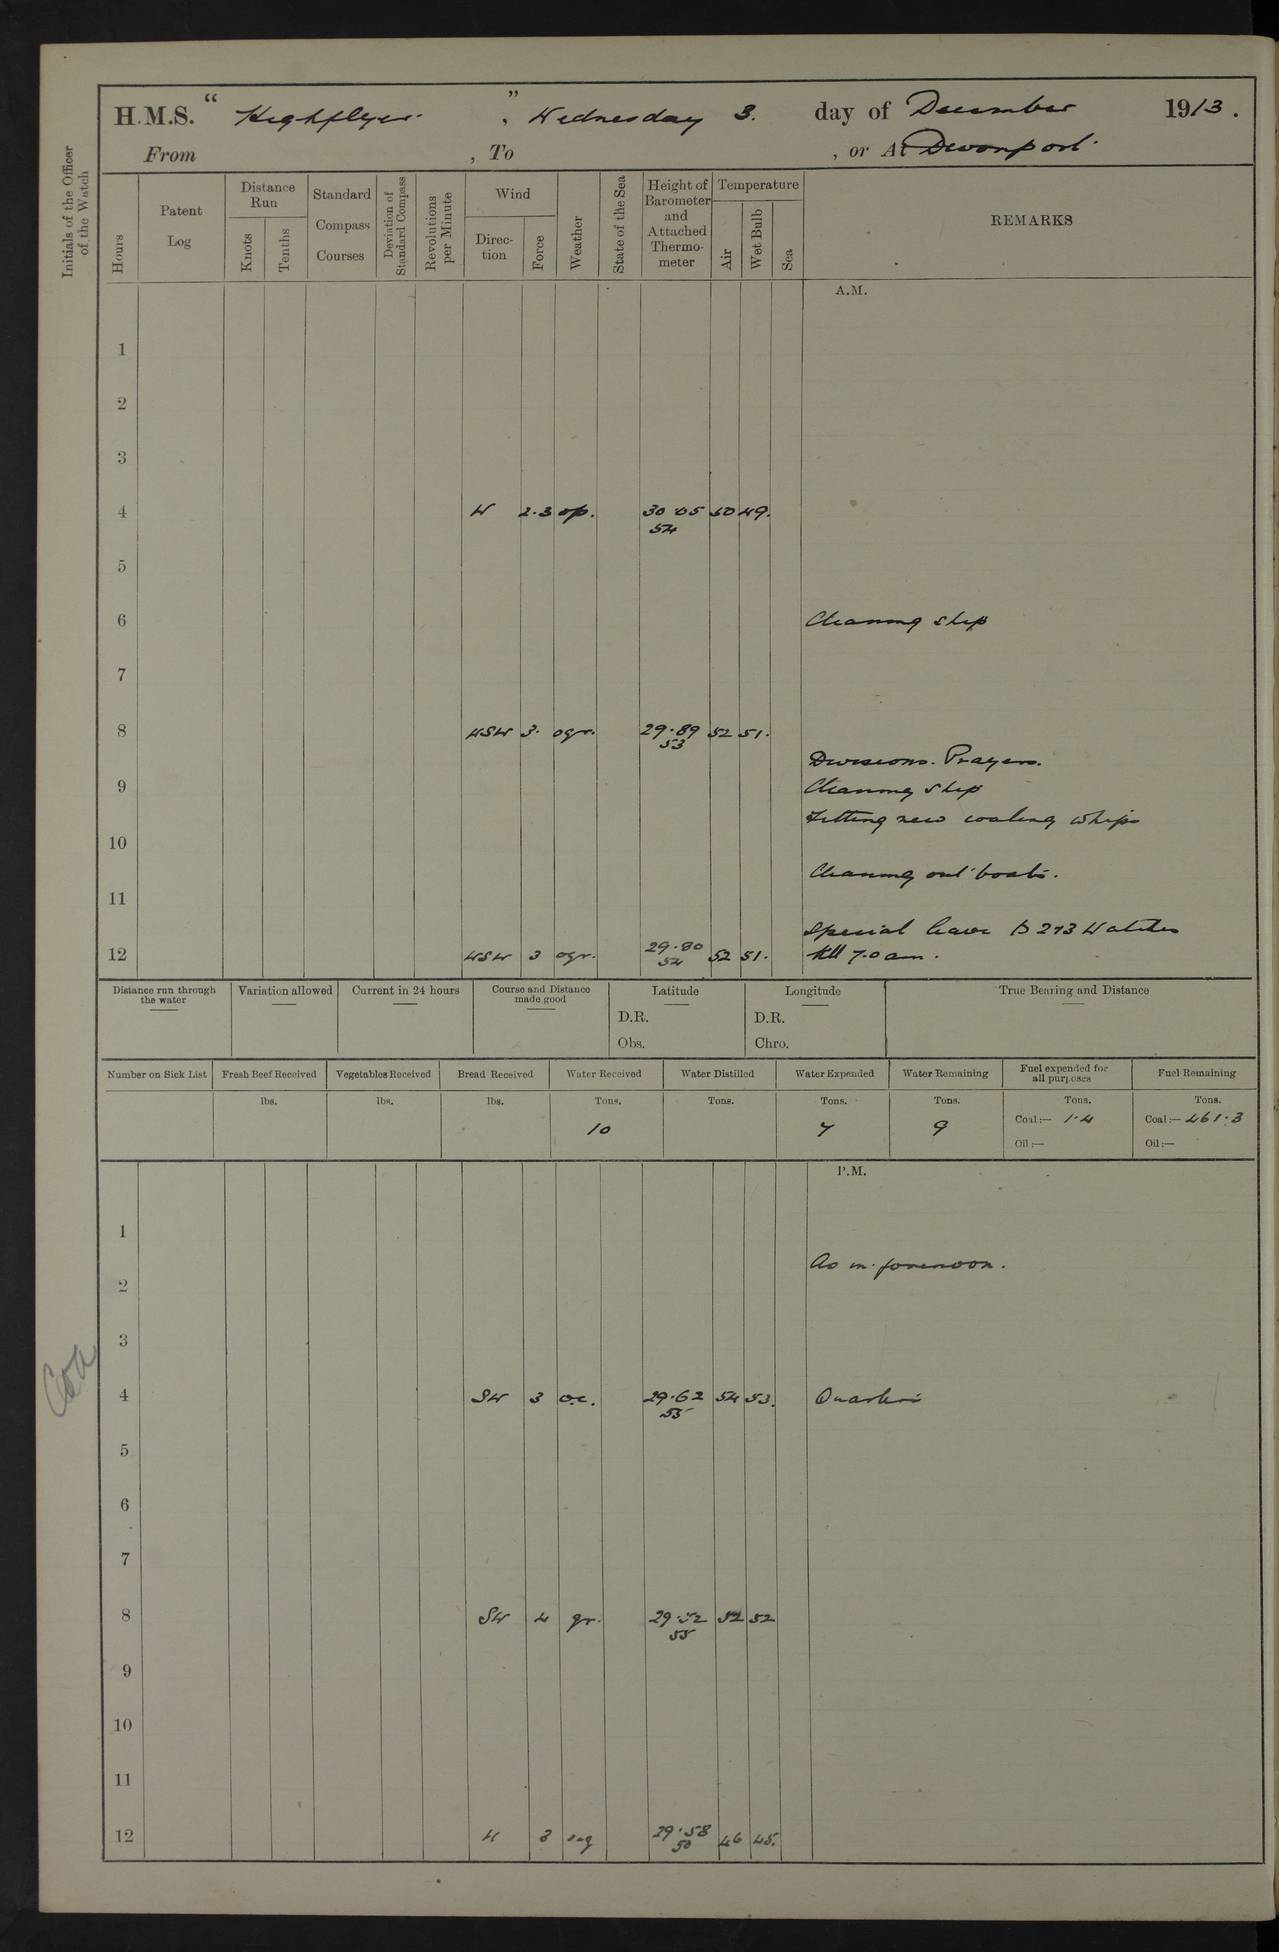 H.M.S. "Highflyer.", Wednesday 3. day of December 1913.
From , To , or At Devonport.
Initials of the Officer of the Watch
Hours
Patent Log
Distance Run
Knots
Tenths
Standard Compass Courses
Deviation of Standard Compass
Revolutions per Minute
Wind
Direction
Force
Weather
State of the Sea
Height of Barometer and Attached Thermometer
Temperature
Air
Wet Bulb
Sea
REMARKS
A.M.
1
2
3
4 W 2.3 op. 30.05 50 49.
54
5
6 Cleaning ship
7
8 WSW 3. ogr. 29.89 52 51.
53
Divisions. Prayers.
9 Cleaning ship
Fitting new coaling whips
10
Cleaning out boats.
11
Special leave to 2 & 3 Watches
12 WSW 3 ogr. 29.80 52 51. till 7.0 am.
54
Distance run through the water
Variation allowed
Current in 24 hours
Course and Distance made good
Latitude
D.R.
Obs.
Longitude
D.R.
Chro.
True Bearing and Distance
Number on Sick List
Fresh Beef Received
lbs.
Vegetables Received
lbs.
Bread Received
lbs.
Water Received
Tons.
10
Water Distilled
Tons.
Water Expended
Tons.
7
Water Remaining
Tons.
9
Fuel expended for all purposes
Tons.
Coal:— 1.4
Oil:—
Fuel Remaining
Tons.
Coal:— 461.3
Oil:—
P.M.
1
As in forenoon.
2
3
4 SW 3 o.c. 29.62 54 53. Quarters
55
5
6
7
8 SW 4 gr. 29.52 52 52
55
9
10
11
12 W 3 29.58 46 45.
50